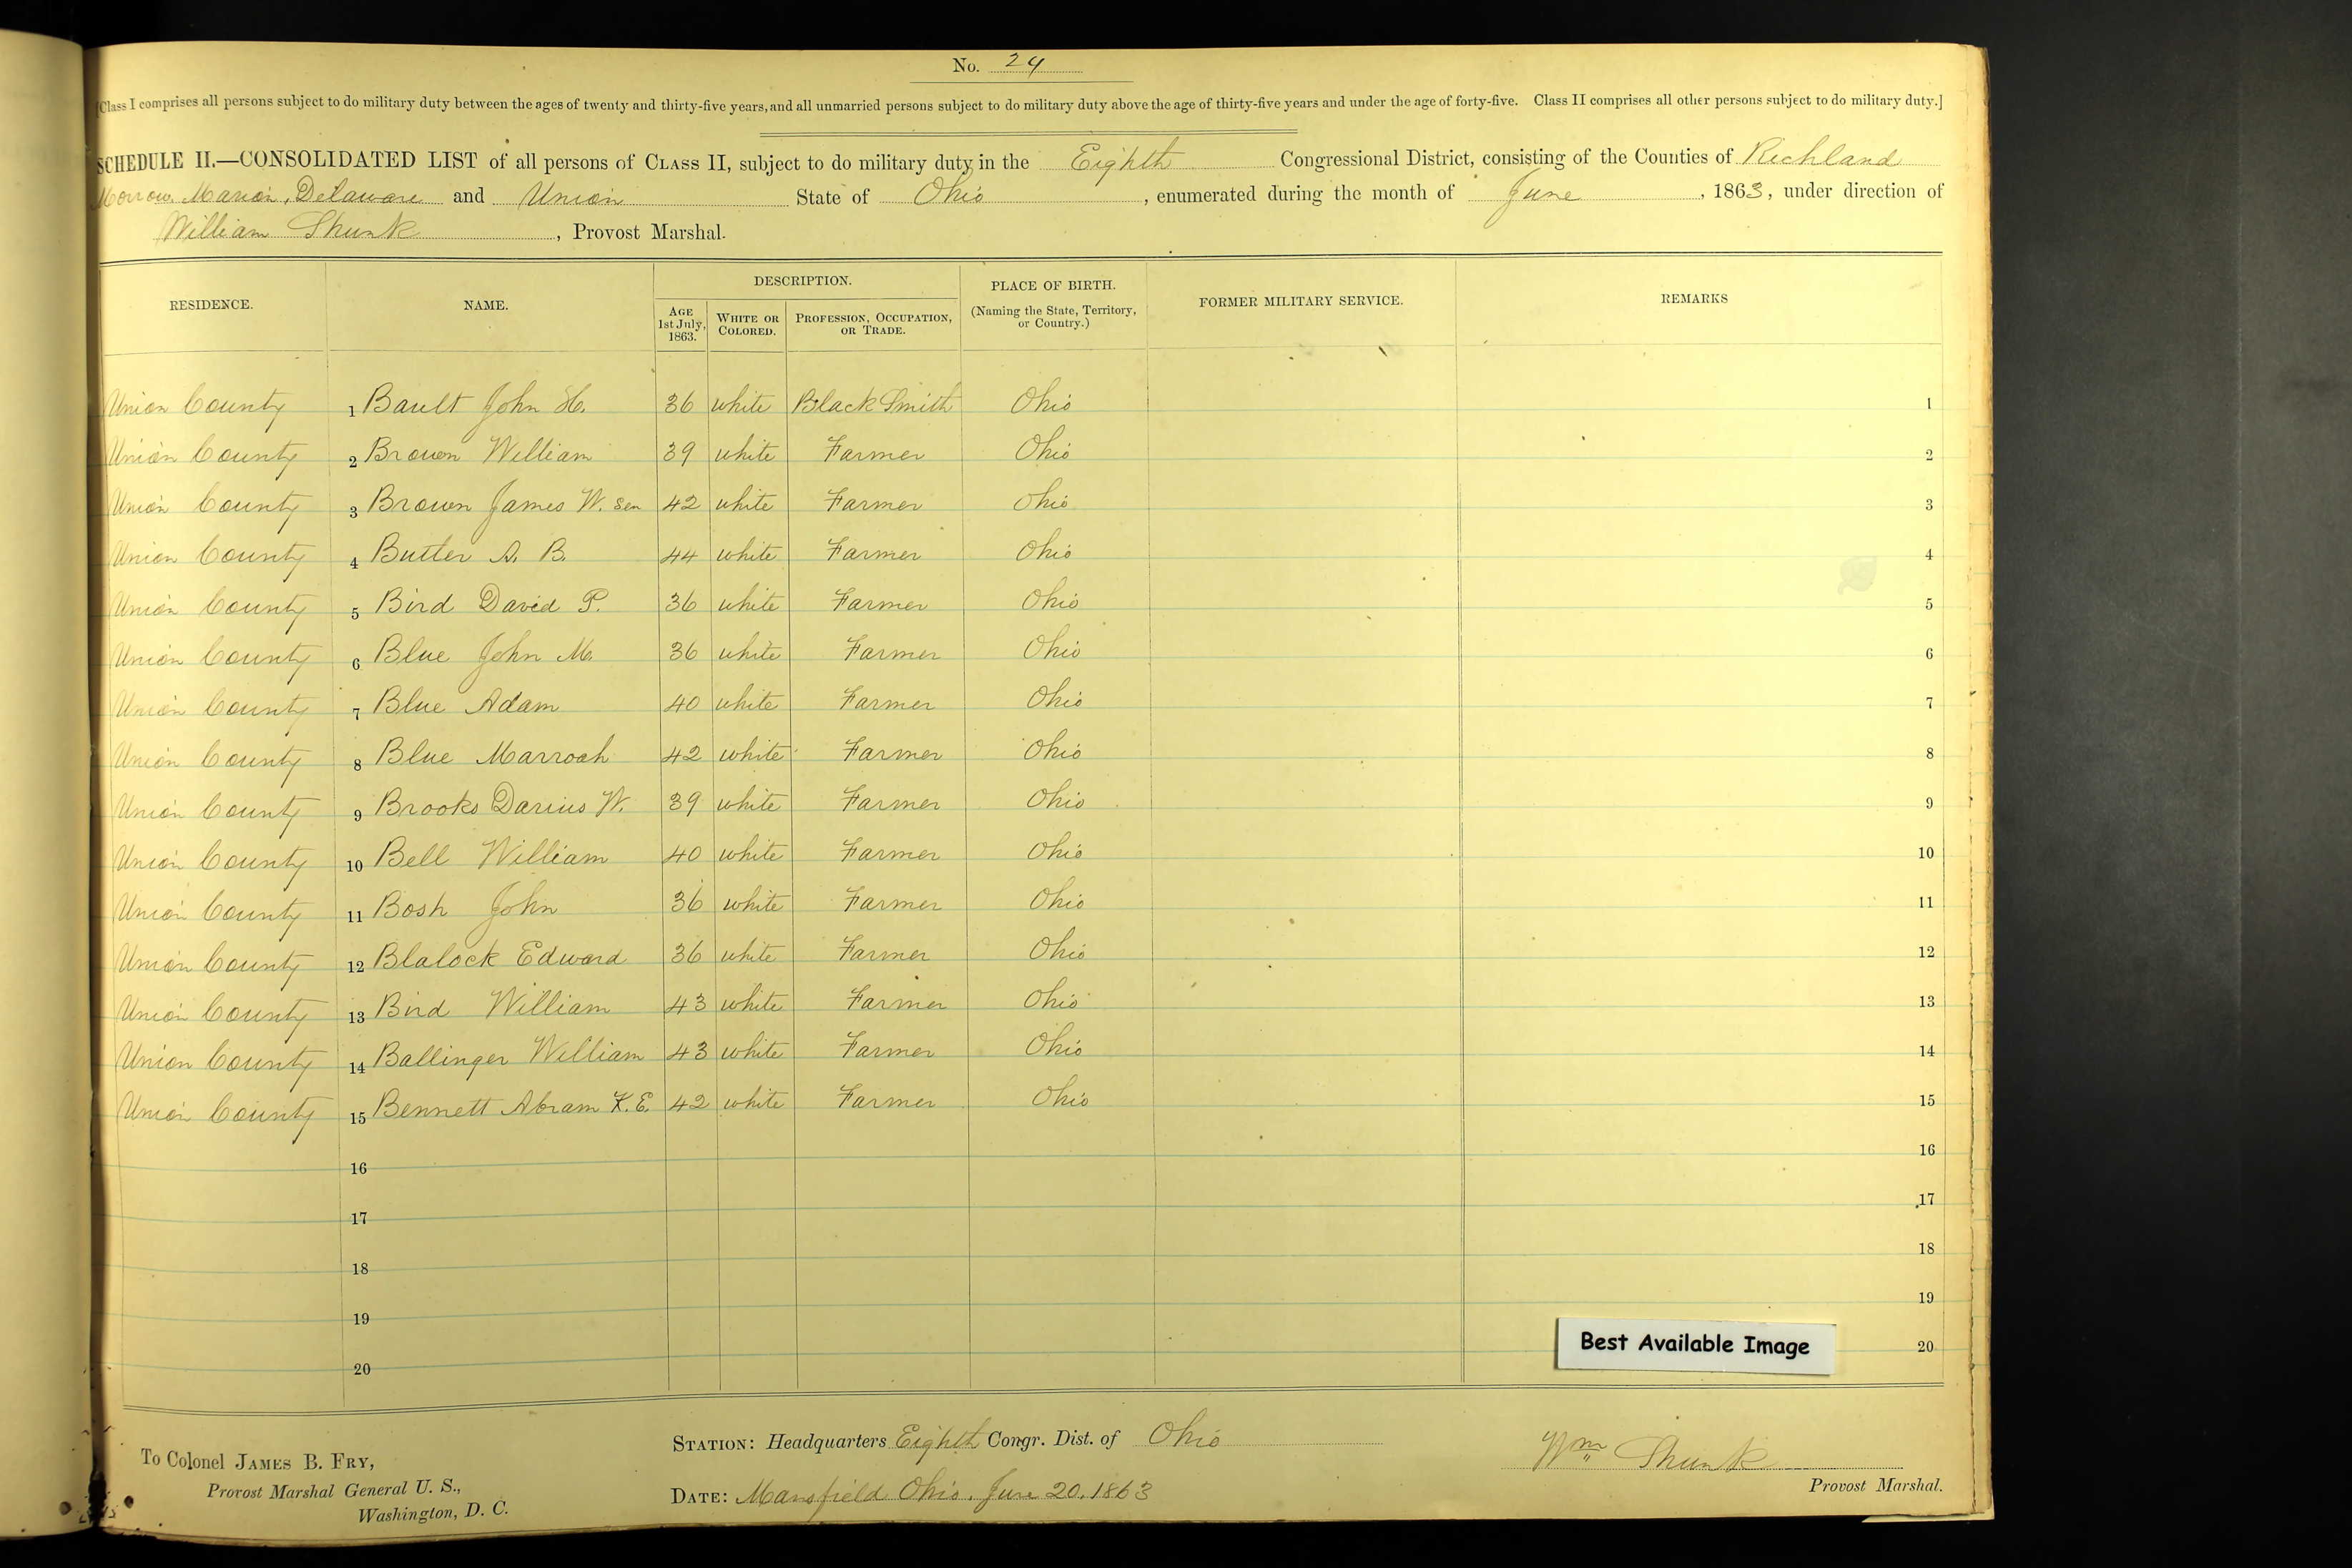 No. 24
[Class I comprises all persons subject to do military duty between the ages of twenty and thirty-five years, and all unmarried persons subject to do military duty above the age of thirty-five years and under the age of forty-five. Class II comprises all other persons subject to do military duty.]
SCHEDULE II.—CONSOLIDATED LIST of all persons of CLASS II, subject to do military duty in the Eighth Congressional District, consisting of the Counties of Richland
Morrow, Marion, Delaware and Union State of Ohio, enumerated during the month of June, 1863, under direction of
William Shunk, Provost Marshal.
RESIDENCE. NAME. DESCRIPTION. PLACE OF BIRTH. (Naming the State, Territory, or Country.) FORMER MILITARY SERVICE. REMARKS
AGE 1st July, 1863. WHITE OR COLORED. PROFESSION, OCCUPATION, OR TRADE.
Union County 1 Bault John H. 36 white Black Smith Ohio 1
Union County 2 Brown William 39 white Farmer Ohio 2
Union County 3 Brown James W. Sen 42 white Farmer Ohio 3
Union County 4 Butler A. B. 44 white Farmer Ohio 4
Union County 5 Bird David P. 36 white Farmer Ohio 5
Union County 6 Blue John M. 36 white Farmer Ohio 6
Union County 7 Blue Adam 40 white Farmer Ohio 7
Union County 8 Blue 42 white Farmer Ohio 8
Union County 9 Brooks Darius W. 39 white Farmer Ohio 9
Union County 10 Bell William 40 white Farmer Ohio 10
Union County 11 Bosh John 36 white Farmer Ohio 11
Union County 12 Blalock Edward 36 white Farmer Ohio 12
Union County 13 Bird William 43 white Farmer Ohio 13
Union County 14 Ballinger William 43 white Farmer Ohio 14
Union County 15 Bennett Abram K. E. 42 white Farmer Ohio 15
16 16
17 17
18 18
19 19
20 20
Best Available Image
To Colonel JAMES B. FRY,
Provost Marshal General U. S.,
Washington, D. C.
STATION: Headquarters Eighth Congr. Dist. of Ohio
DATE: Mansfield Ohio. June 20, 1863
Wm Shunk
Provost Marshal.